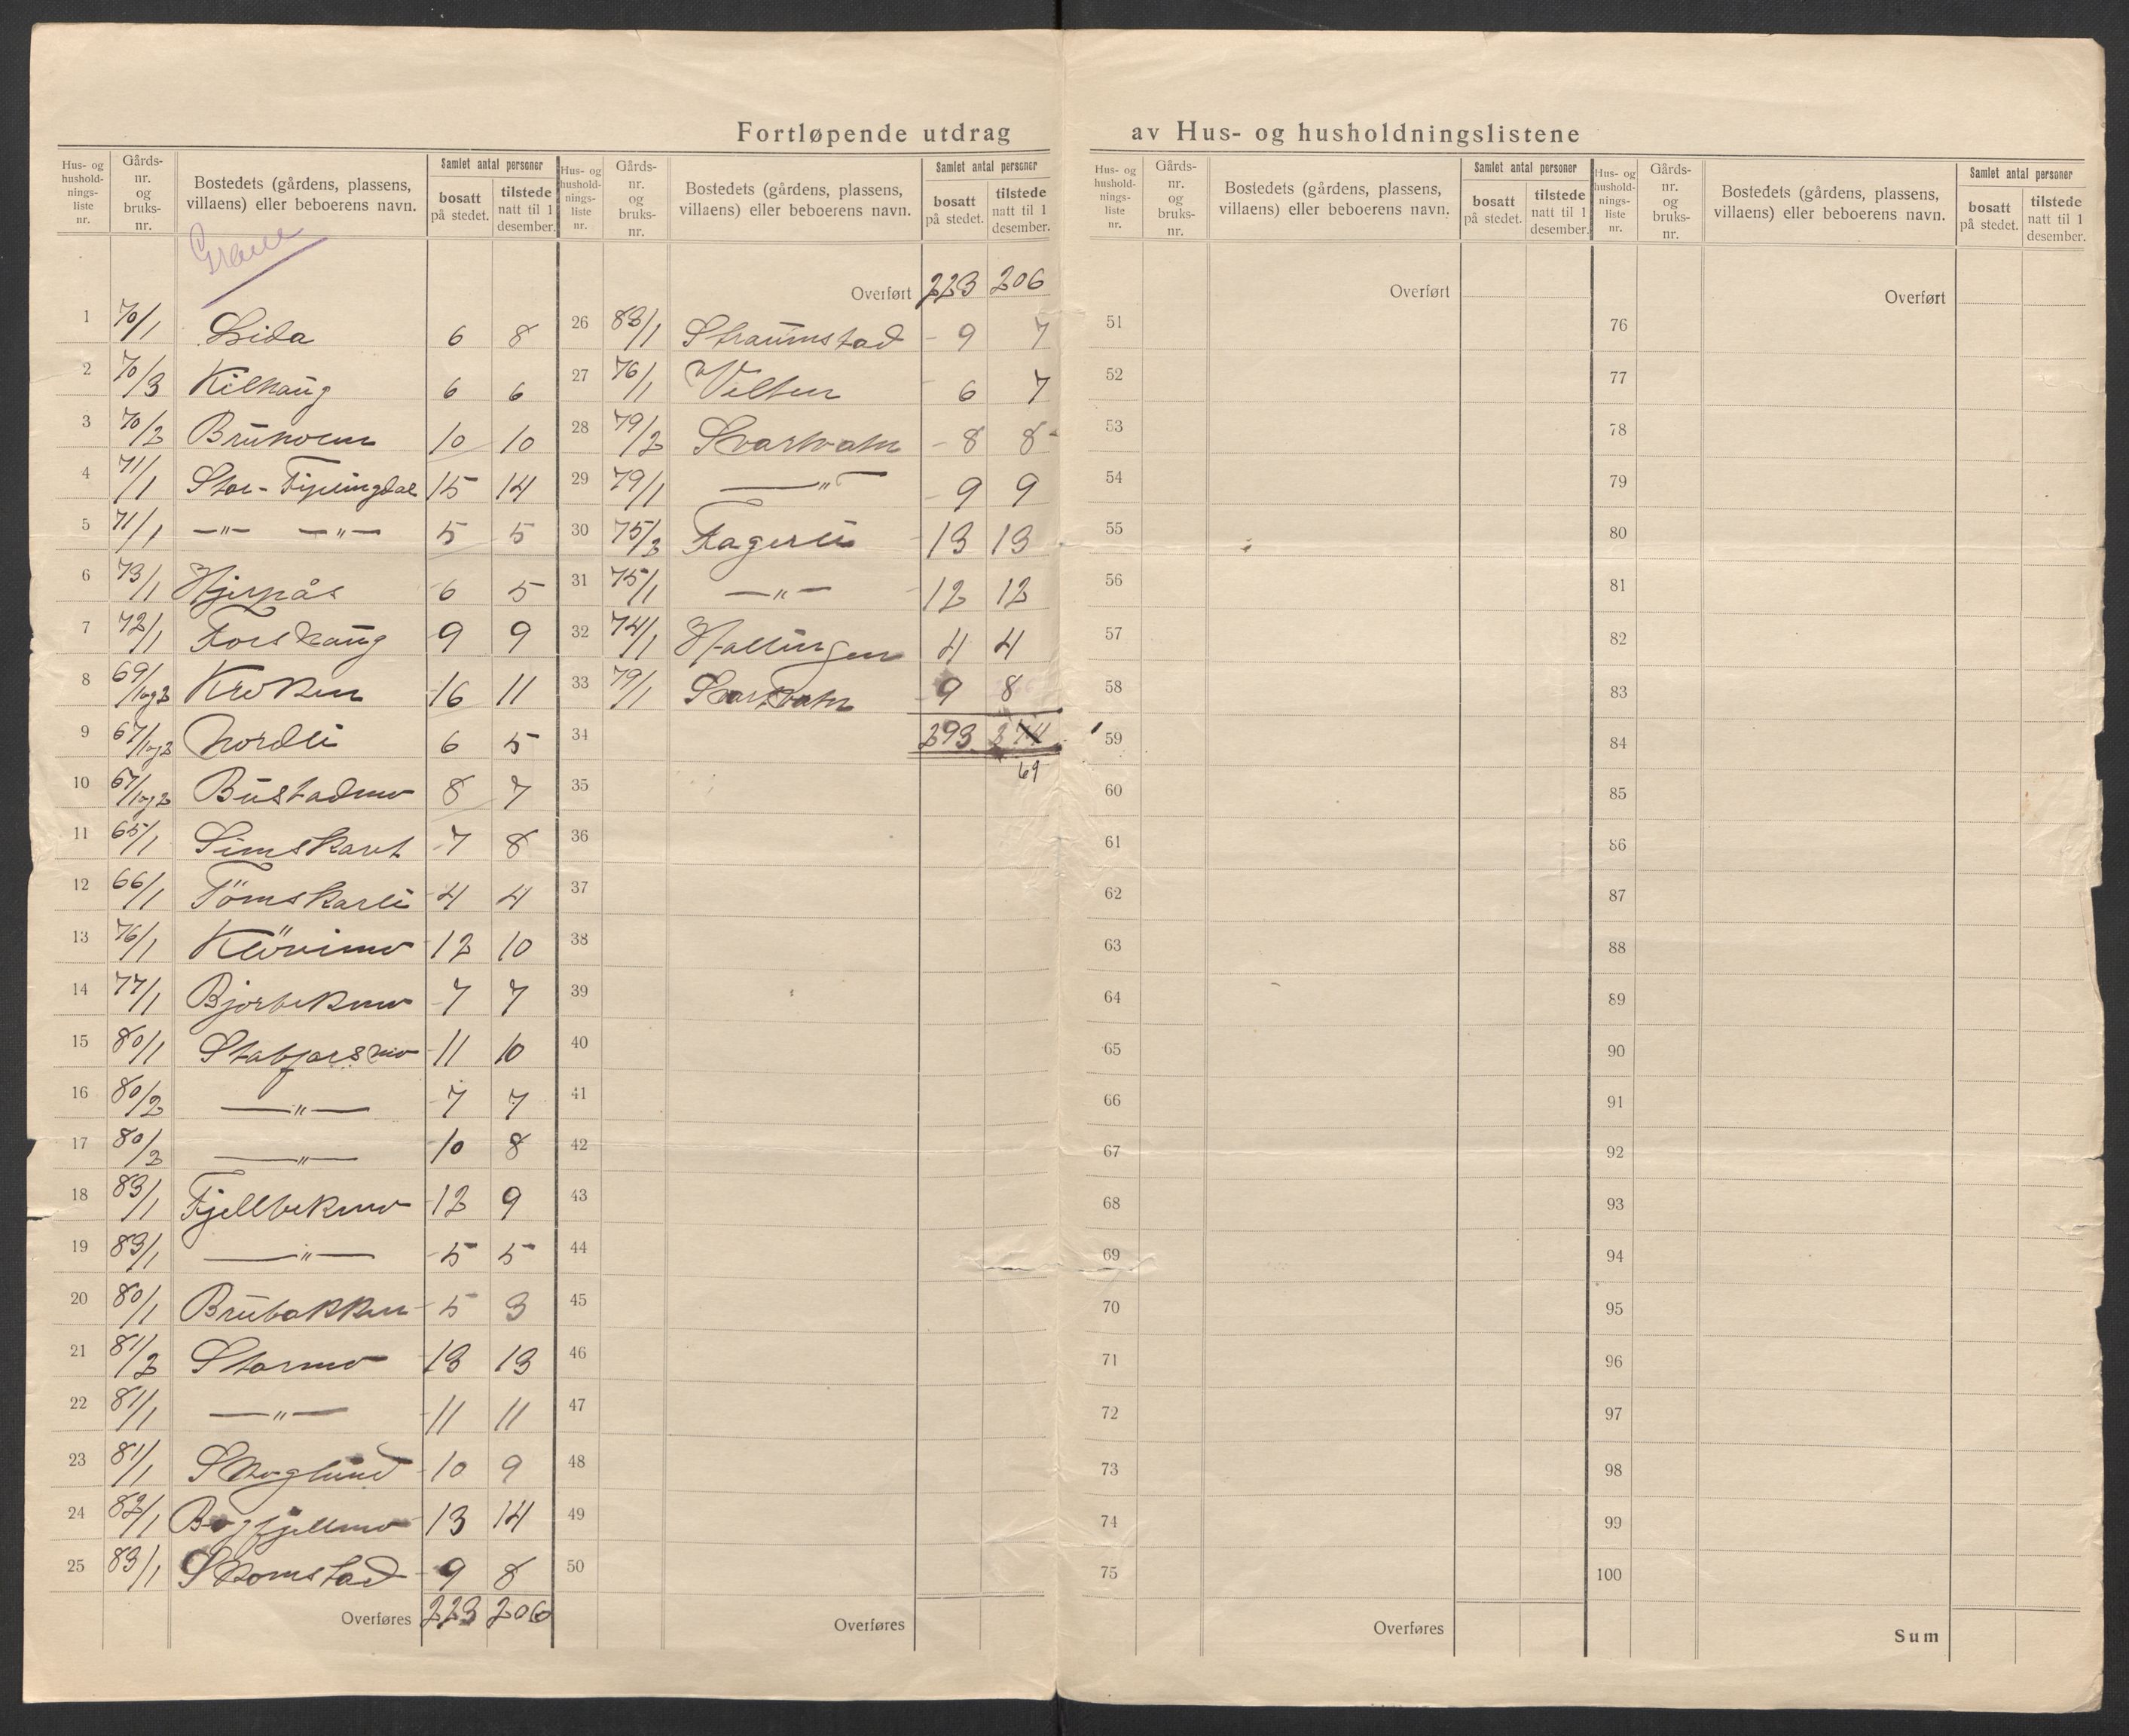 Fortløpende utdrag av Hus- og husholdningslistene
Hus- og hushold-nings-liste nr. Gårds-nr. og bruks-nr. Bostedets (gårdens, plassens, villaens) eller beboerens navn. Samlet antal personer bosatt på stedet. tilstede natt til 1 desember.
Grane
1 70/1 Lida 6 8
2 70/3 Kilhaug 6 6
3 70/2 10 10
4 71/1 Stor-Fiplingdal 15 14
5 71/1 —"— —"— 5 5
6 73/1 Hjernås 6 5
7 72/1 Forshaug 9 9
8 69/1og2 Kroken 16 11
9 67/1og2 Nordli 6 5
10 67/1og2 Bustadmo 8 7
11 65/1 Simskart 7 8
12 66/1 Tömskarli 4 4
13 76/1 Klövimo 12 10
14 77/1 Bjorbekmo 7 7
15 80/1 Stabforsmo 11 10
16 80/2 —"— 7 7
17 80/2 —"— 10 8
18 83/1 Fjellbekmo 12 9
19 83/1 —"— 5 5
20 80/1 Brubakken 5 3
21 81/2 Stormo 13 13
22 81/1 —"— 11 11
23 81/1 Skoglund 10 9
24 82/1 Bogfjellmo 13 14
25 83/1 9 8
Overføres 223 206
Hus- og hushold-nings-liste nr. Gårds-nr. og bruks-nr. Bostedets (gårdens, plassens, villaens) eller beboerens navn. Samlet antal personer bosatt på stedet. tilstede natt til 1 desember.
Overført 223 206
26 83/1 Straumstad 9 7
27 76/1 6 7
28 79/2 Svartvatn 8 8
29 79/1 —"— 9 9
30 75/2 Fagerli 13 13
31 75/1 —"— 12 12
32 74/1 Hallingen 4 4
33 79/1 Svartvatn 9 8
34 293 274
69
35
36
37
38
39
40
41
42
43
44
45
46
47
48
49
50
Overføres
Hus- og hushold-nings-liste nr. Gårds-nr. og bruks-nr. Bostedets (gårdens, plassens, villaens) eller beboerens navn. Samlet antal personer bosatt på stedet. tilstede natt til 1 desember.
Overført
51
52
53
54
55
56
57
58
59
60
61
62
63
64
65
66
67
68
69
70
71
72
73
74
75
Overføres
Hus- og hushold-nings-liste nr. Gårds-nr. og bruks-nr. Bostedets (gårdens, plassens, villaens) eller beboerens navn. Samlet antal personer bosatt på stedet. tilstede natt til 1 desember.
Overført
76
77
78
79
80
81
82
83
84
85
86
87
88
89
90
91
92
93
94
95
96
97
98
99
100
Sum